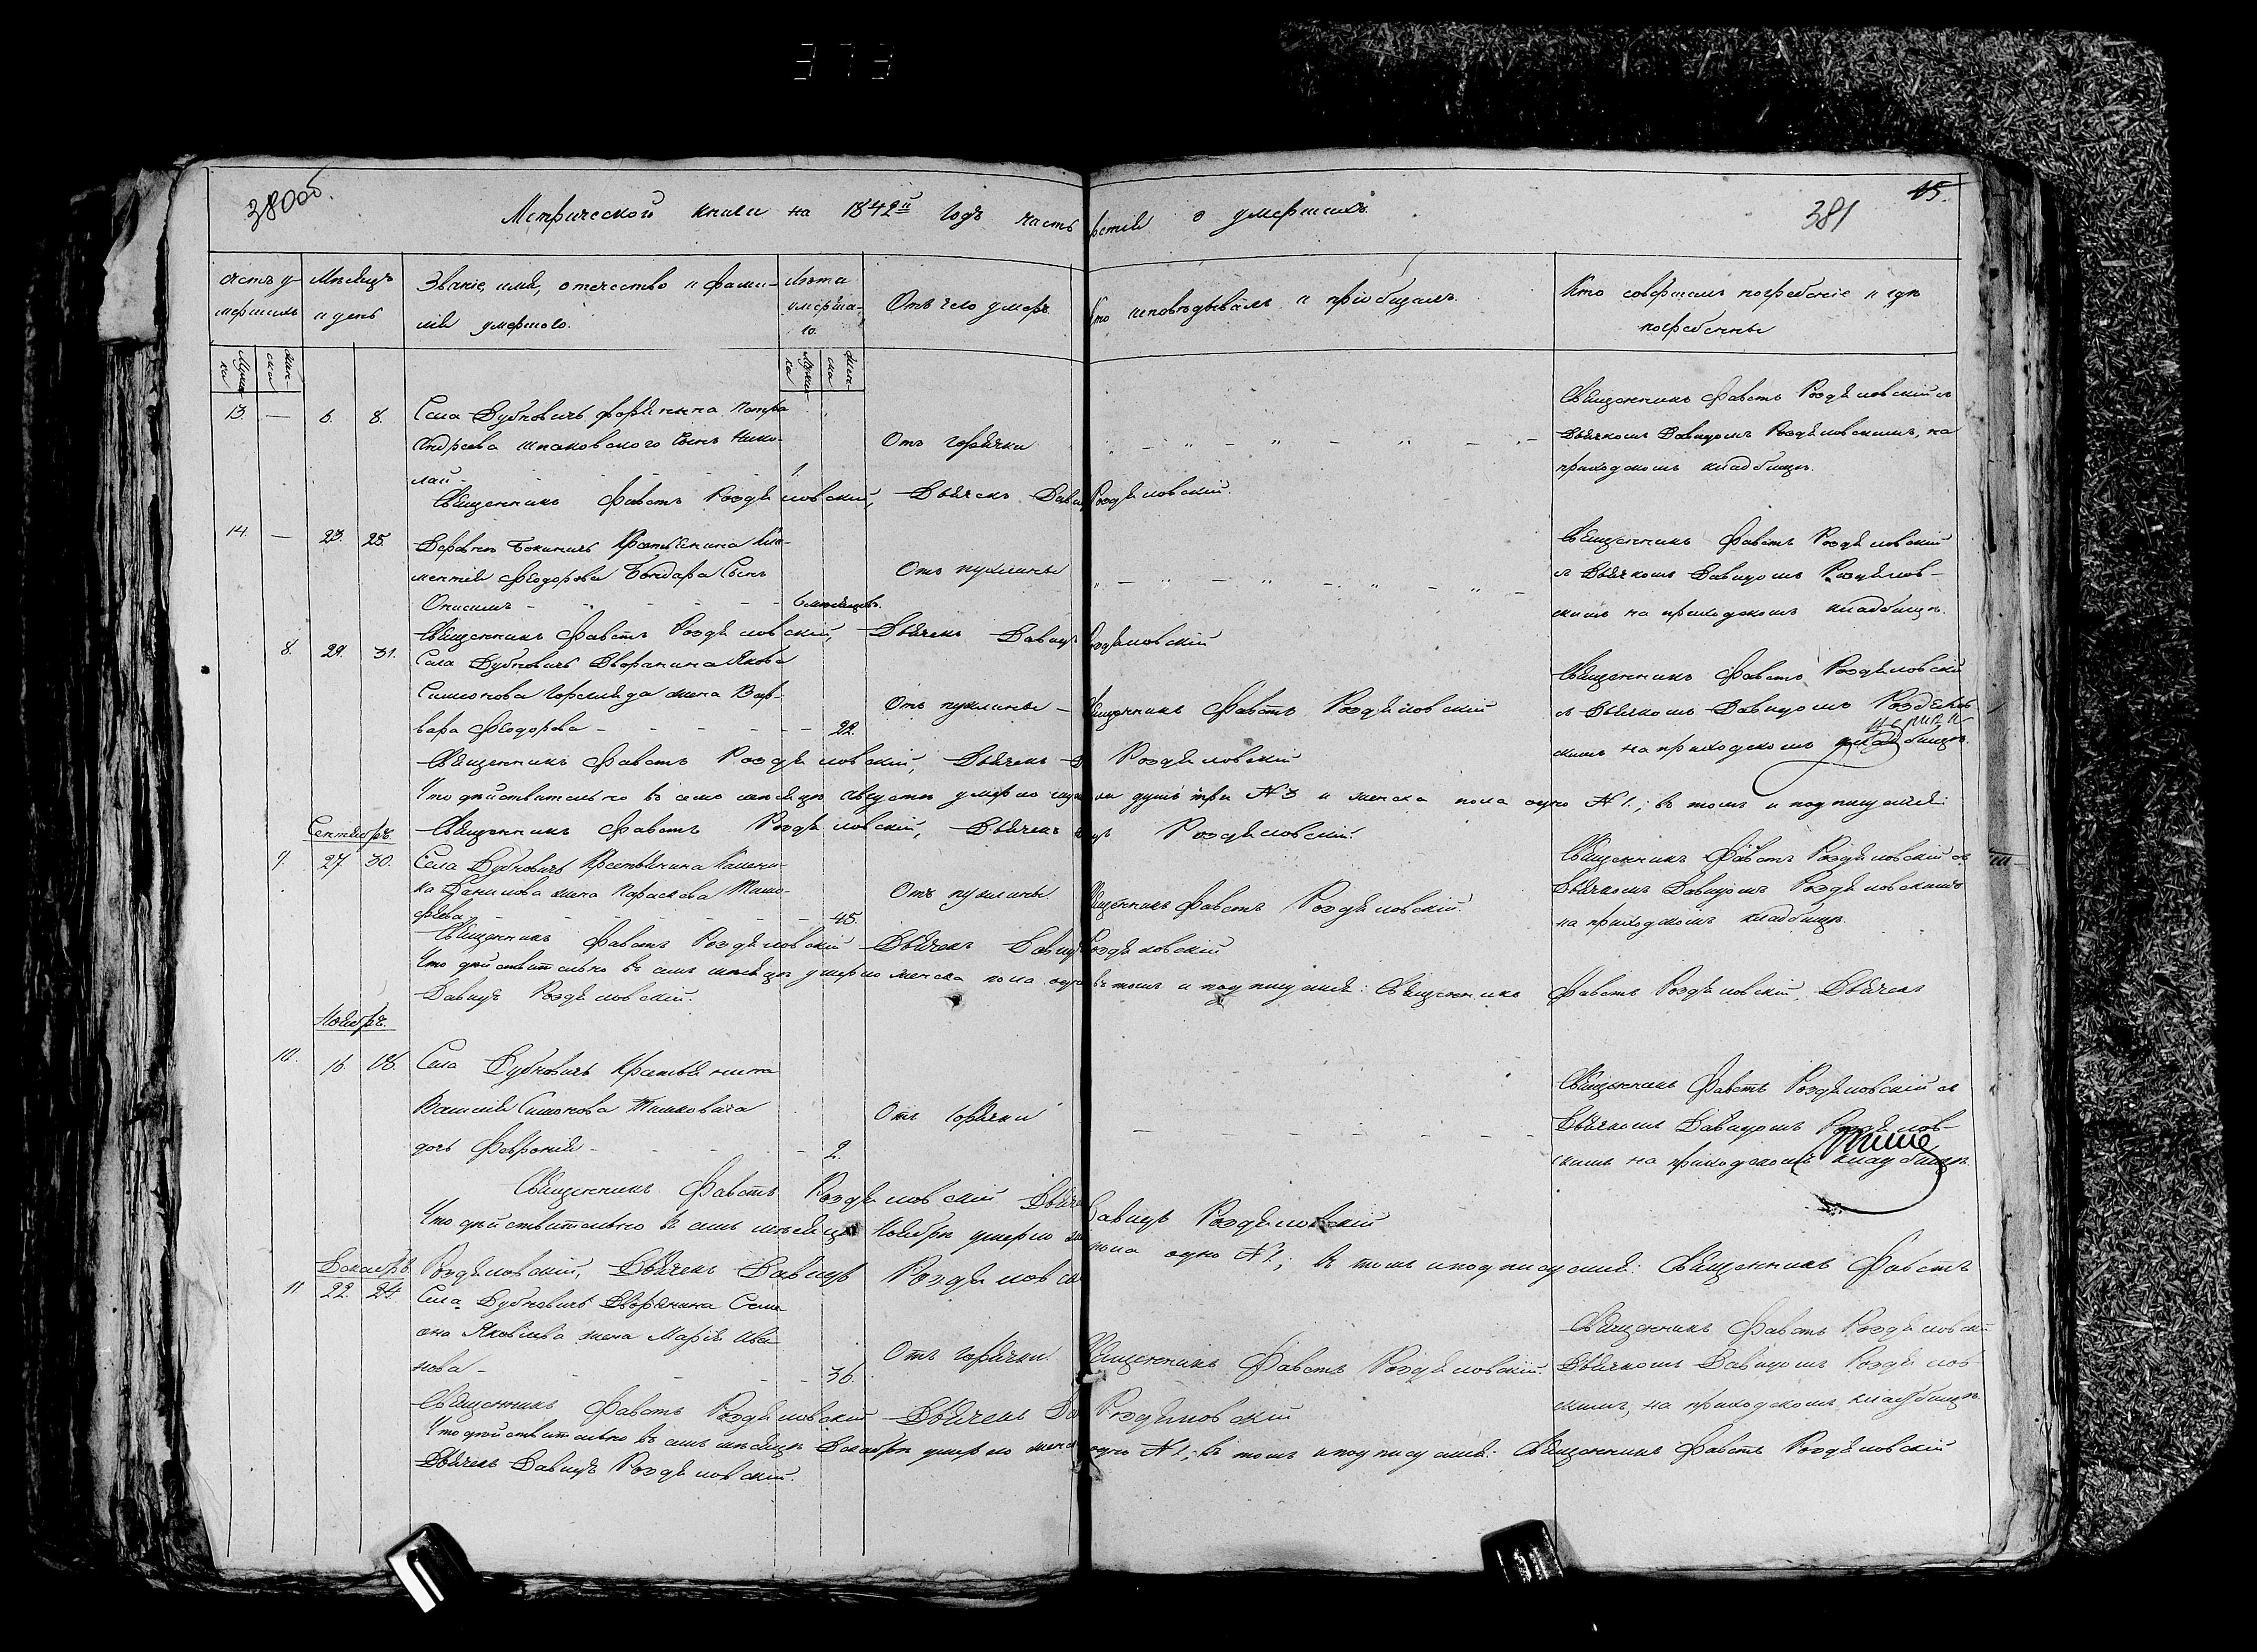 373
380об.
Метрической книги на 1842й годъ часть третія о умершихъ.
381
45.
Счетъ у-
мершихъ
Мѣсяцъ
и день
Званіе, имя, отечество и фами-
лія умершаго.
Лѣта
умерша-
го.
Отъ чего умеръ.
Кто исповѣдывалъ и пріобщалъ.
Кто совершалъ погребеніе и гдѣ
погребенны
Муже-
ска
Жен-
ска
Муже-
ска
Жен-
ска
13. — 6. 8. Села Дубновичъ дворянина Петра
Андреева сынъ Нико-
лай - 1.
Отъ горячки
Священникъ Фавстъ Роздяловскій съ
Дьячкомъ Давидомъ Роздяловскимъ, на
приходскомъ кладбищѣ.
Священникъ Фавстъ Роздяловскій, Дьячекъ Давидъ Роздяловскій.
14. — 23. 25. Деревни Крестьянина Кли-
ментія Феодорова Бондара Сынъ
Онисимъ - 6 мѣсяцовъ.
Отъ пухлины
Священникъ Фавстъ Роздяловскій
съ Дьячкомъ Давидомъ Роздялов-
скимъ на приходскомъ кладбищѣ.
Священникъ Фавстъ Роздяловскій, Дьячекъ Давидъ Роздяловскій
8. 29. 31. Села Дубновичъ Дворянина Якова
Симонова жена Вар-
вара Феодорова - 22.
Отъ пухлины - Священникъ Фавстъ Роздяловскій
Священникъ Фавстъ Роздяловскій
съ Дьячкомъ Давидомъ Роздялов
скимъ на приходскомъ кладбищѣ.
Священникъ Фавстъ Роздяловскій, Дьячекъ Роздяловскій
Что дѣйствительно въ семъ мѣсяцѣ Августѣ умерло душъ три № 3 и женска пола одно № 1.; въ томъ и подписуемся:
Священникъ Фавстъ Роздяловскій, Дьячекъ Роздяловскій.
Сентябрь.
9. 27. 30. Села Дубновичъ Крестьянина
Данилова жена Параскева Тимо-
фѣева - 45.
Отъ пухлины. Священникъ Фавстъ Роздяловскій.
Священникъ Фавстъ Роздяловскій съ
Дьячкомъ Давидомъ Роздяловскимъ
на приходскомъ кладбищѣ.
Священникъ Фавстъ Роздяловскій Дьячекъ Давидъ Роздяловскій
Что дѣйствительно въ семъ мѣсяцѣ умерло женска пола одно въ томъ и подписуемся: Священникъ Фавстъ Роздяловскій, Дьячекъ
Давидъ Роздяловскій.
Ноябрь.
10. 16 18. Села Дубновичъ Крестьянина
Василія Симонова Тимковича
дочь Февронія - 2.
Отъ горячки
Священникъ Фавстъ Роздяловскій съ
Дьячкомъ Давидомъ Роздялов-
скимъ на приходскомъ кладбищѣ.
Священникъ Фавстъ Роздяловскій Дьячекъ Давидъ Роздяловскій
Что дѣйствительно въ семъ мѣсяцѣ Ноябрѣ умерло пола одно № 1.; въ томъ и подписуемся: Священникъ Фавстъ
Роздяловскій, Дьячекъ Давидъ Роздяловскій
Декабрь
11 22. 24. Села Дубновичъ Дворянина Семи-
она Яковлева жена Марія Ива
нова - 36.
Отъ горячки. Священникъ Фавстъ Роздяловскій.
Священникъ Фавстъ Роздяловскій
Дьячкомъ Давидомъ Роздялов
скимъ, на приходскомъ кладбищѣ.
Священникъ Фавстъ Роздяловскій Дьячекъ Роздяловскій
Что дѣйствительно въ семъ мѣсяцѣ Декабрѣ умерло женска одно № 1.; въ томъ и подписуемся: Священникъ Фавстъ Роздяловскій
Дьячекъ Давидъ Роздяловскій.